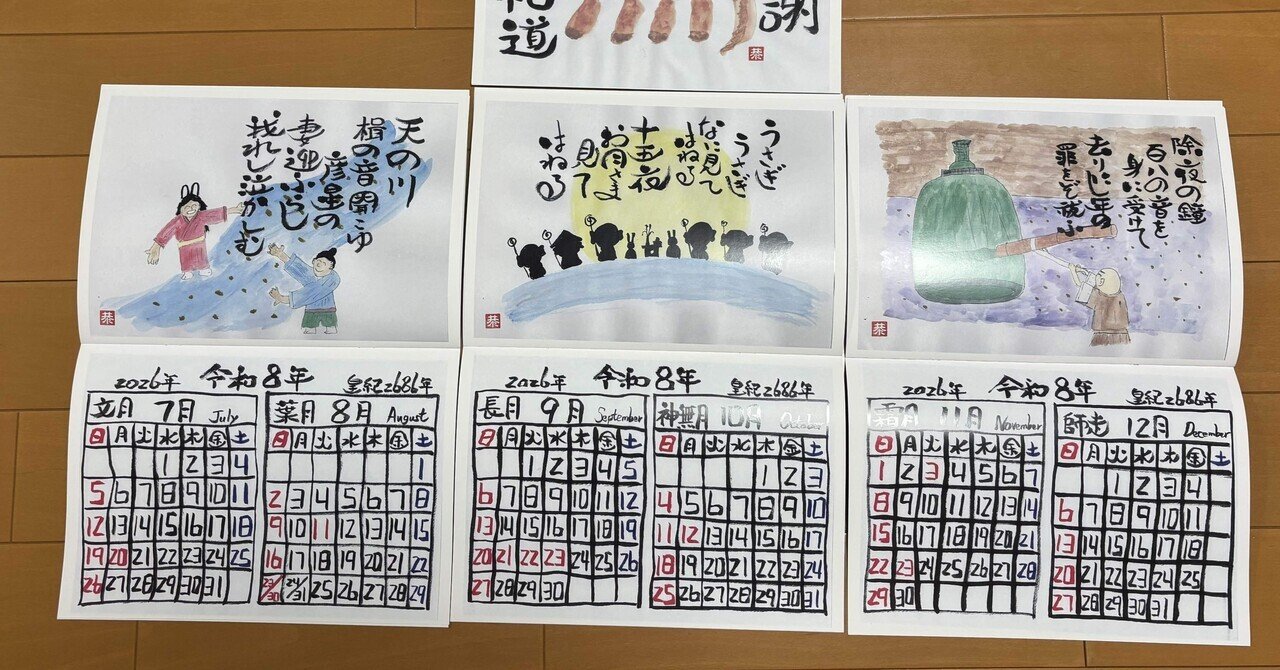 道
謝
天の川
楫の音聞こゆ
彦星の
うさぎ
うさぎ
なに見て
はねる
十五夜
お月さま
見て
はねる
除夜の鐘
百八の音を、
身に受けて
去りにし年の
罪をぞ祓ふ
2026年 令和8年 皇紀2686年
7月 July
日 月 火 水 木 金 土
1 2 3 4
5 6 7 8 9 10 11
12 13 14 15 16 17 18
19 20 21 22 23 24 25
26 27 28 29 30 31
葉月 8月 August
日 月 火 水 木 金 土
1
2 3 4 5 6 7 8
9 10 11 12 13 14 15
16 17 18 19 20 21 22
23/30 24/31 25 26 27 28 29
2026年 令和8年 皇紀2686年
長月 9月 September
日 月 火 水 木 金 土
1 2 3 4 5
6 7 8 9 10 11 12
13 14 15 16 17 18 19
20 21 22 23 24 25 26
27 28 29 30
神無月 10月 October
日 月 火 水 木 金 土
1 2 3
4 5 6 7 8 9 10
11 12 13 14 15 16 17
18 19 20 21 22 23 24
25 26 27 28 29 30 31
2026年 令和8年 皇紀2686年
霜月 11月 November
日 月 火 水 木 金 土
1 2 3 4 5 6 7
8 9 10 11 12 13 14
15 16 17 18 19 20 21
22 23 24 25 26 27 28
29 30
師走 12月 December
日 月 火 水 木 金 土
1 2 3 4
6 7 8 9 10 11
13 14 15 16 17 18
20 21 22 23 24 25
27 28 29 30 31